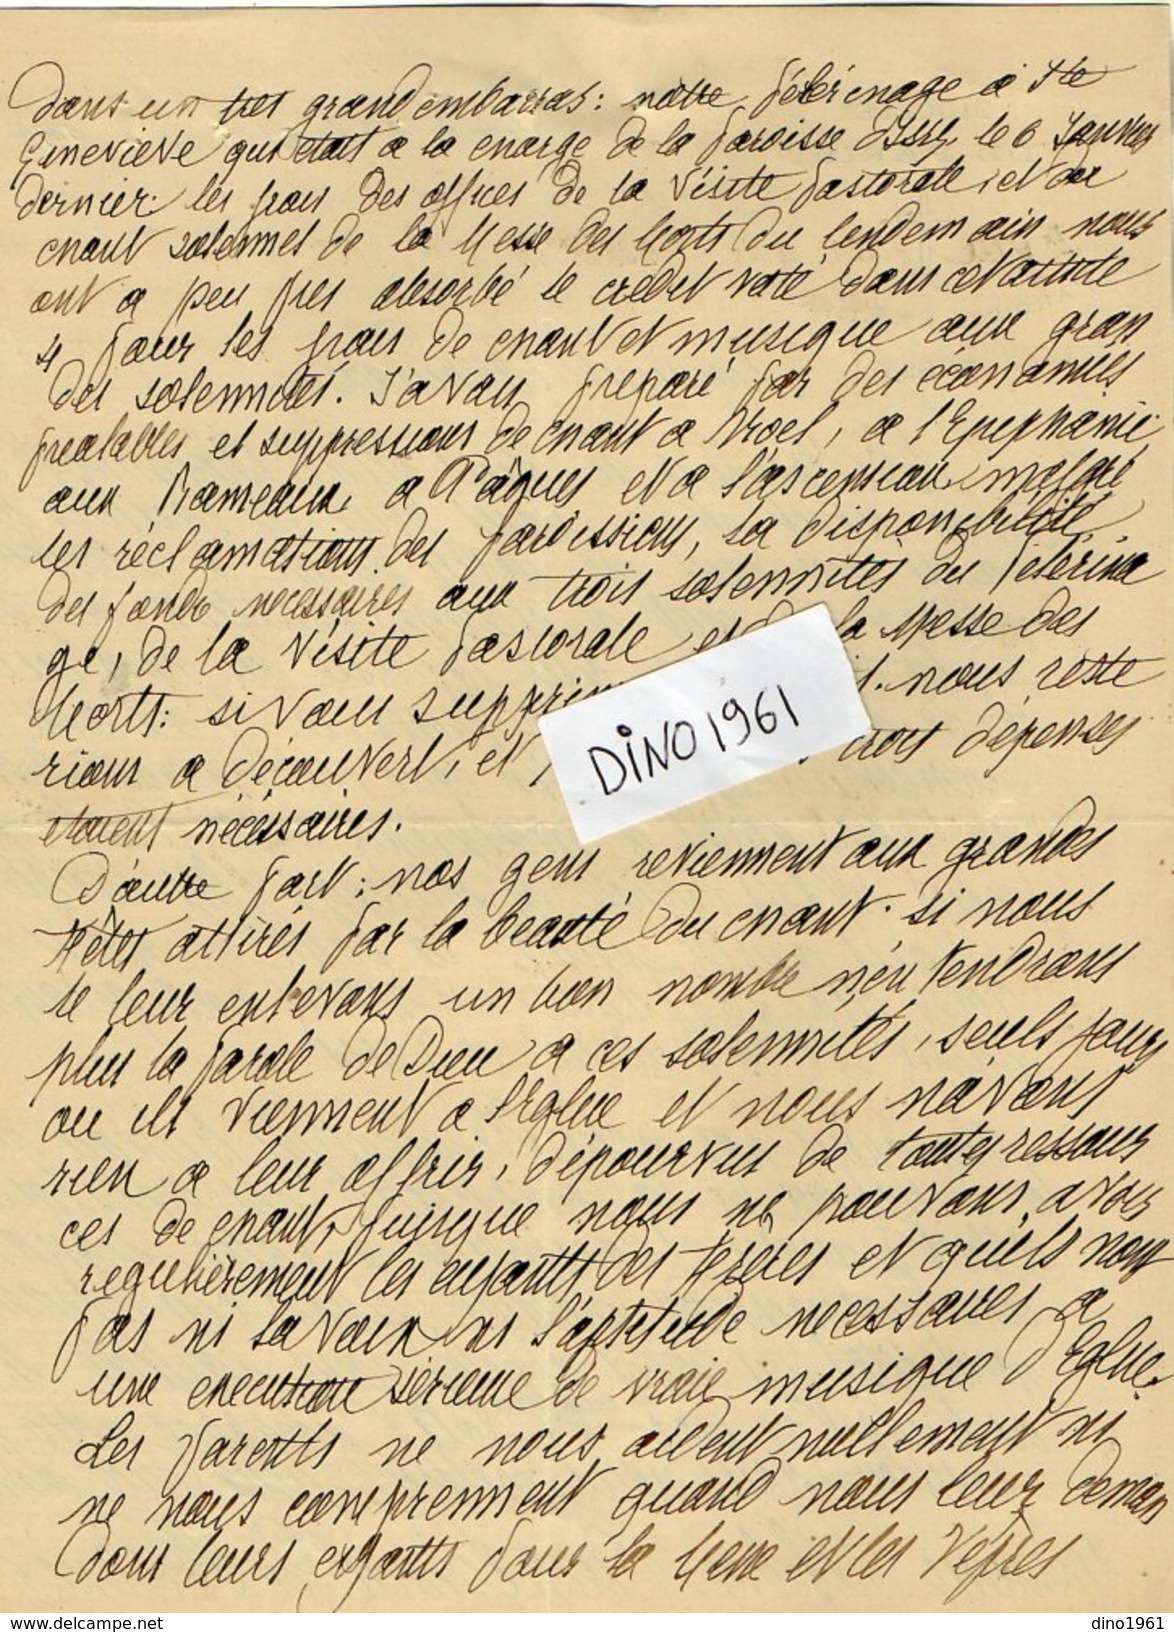 dans un très grand embarras : notre pélérinage à Ste
Geneviève qui était à la charge de la paroisse d'Issy le 6 Janvier
dernier : les frais des offices de la Visite pastorale, et du
chant solennel de la Messe des Morts du lendemain nous
ont à peu près absorbé le crédit voté dans cet article
4 pour les frais de chant et musique aux gran
des solennités. J'avais préparé par des économies
préalables et suppressions de chant à Noël, à l'Epiphanie
aux Rameaux à Pâques et à l'ascension, malgré
les réclamations des paroissiens, la disponibilité
des fonds nécessaires aux trois solennités du Pélérina
ge, de la Visite pastorale et de la Messe des
Morts : si vous supprim nous reste
rions à découvert, et trois dépenses
étaient nécessaires.
D'autre part : nos gens reviennent aux grandes
fêtes attirés par la beauté du chant. si nous
le leur enlevons un bon nombre n'entendrons
plus la parole de Dieu à ces solennités, seuls jours
où ils viennent à l'Eglise et nous n'avons
rien à leur offrir, dépourvus de toutes ressour
ces de chant, puisque nous ne pouvons avoir
régulièrement les enfants des frères et qu'ils n'ont
pas ni la voix ni l'aptitude nécessaires à
une exécution sérieuse de vraie musique d'Eglise.
Les parents ne nous aident nullement ni
ne nous comprennent quand nous leur deman
dons leurs enfants pour la Messe et les Vêpres
DINO 1961
www.delcampe.net
dino1961